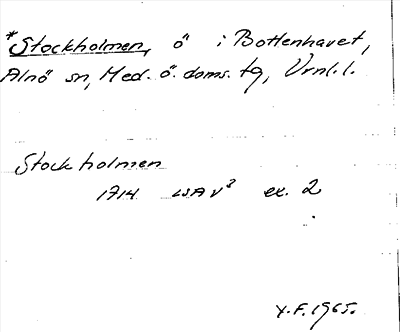 *Stockholmen, ö i Bottenhavet,
Alnö sn, Med. ö. doms. tg, Vrnl. l.
Stockholmen
1714 LSA V² ex. 2
Y.F. 1965.